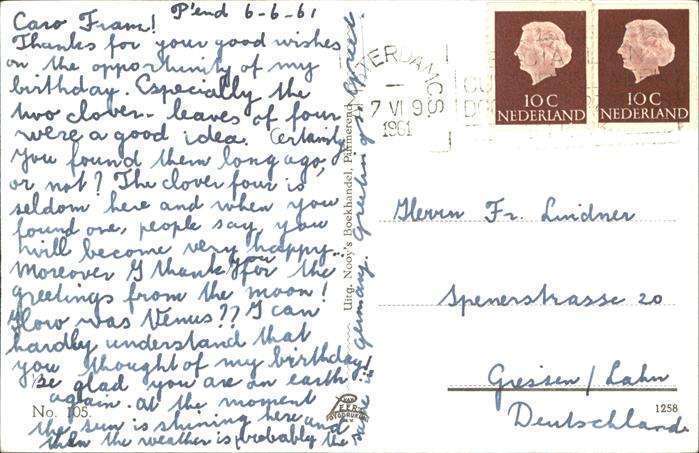 P'end 6-6-61
Caro Fram!
Thanks for your good wishes
on the opportunity of my
birthday. Especially the
two clover-leaves of four
were a good idea. Certainly
you found them long ago,
or not? The clover four is
seldom here and when you
found one, people say, you
will become very happy.
Moreover I thank you for the
greetings from the moon!
How was Venus?? I can
hardly understand that
you thought of my birthday!
Be glad you are on earth
again. At the moment
the sun is shining here and
then the weather is probably the
same in Germany. Greetings
No. 105.
Uitg. Nooy's Boekhandel, Purmerend
VAN
FOTODRUK
AMSTERDAM C.S.
7 VI 9
1961
10 C
NEDERLAND
10 C
NEDERLAND
Herrn Fr. Lindner
Spenerstrasse 20
Giessen / Lahn
Deutschland
1258